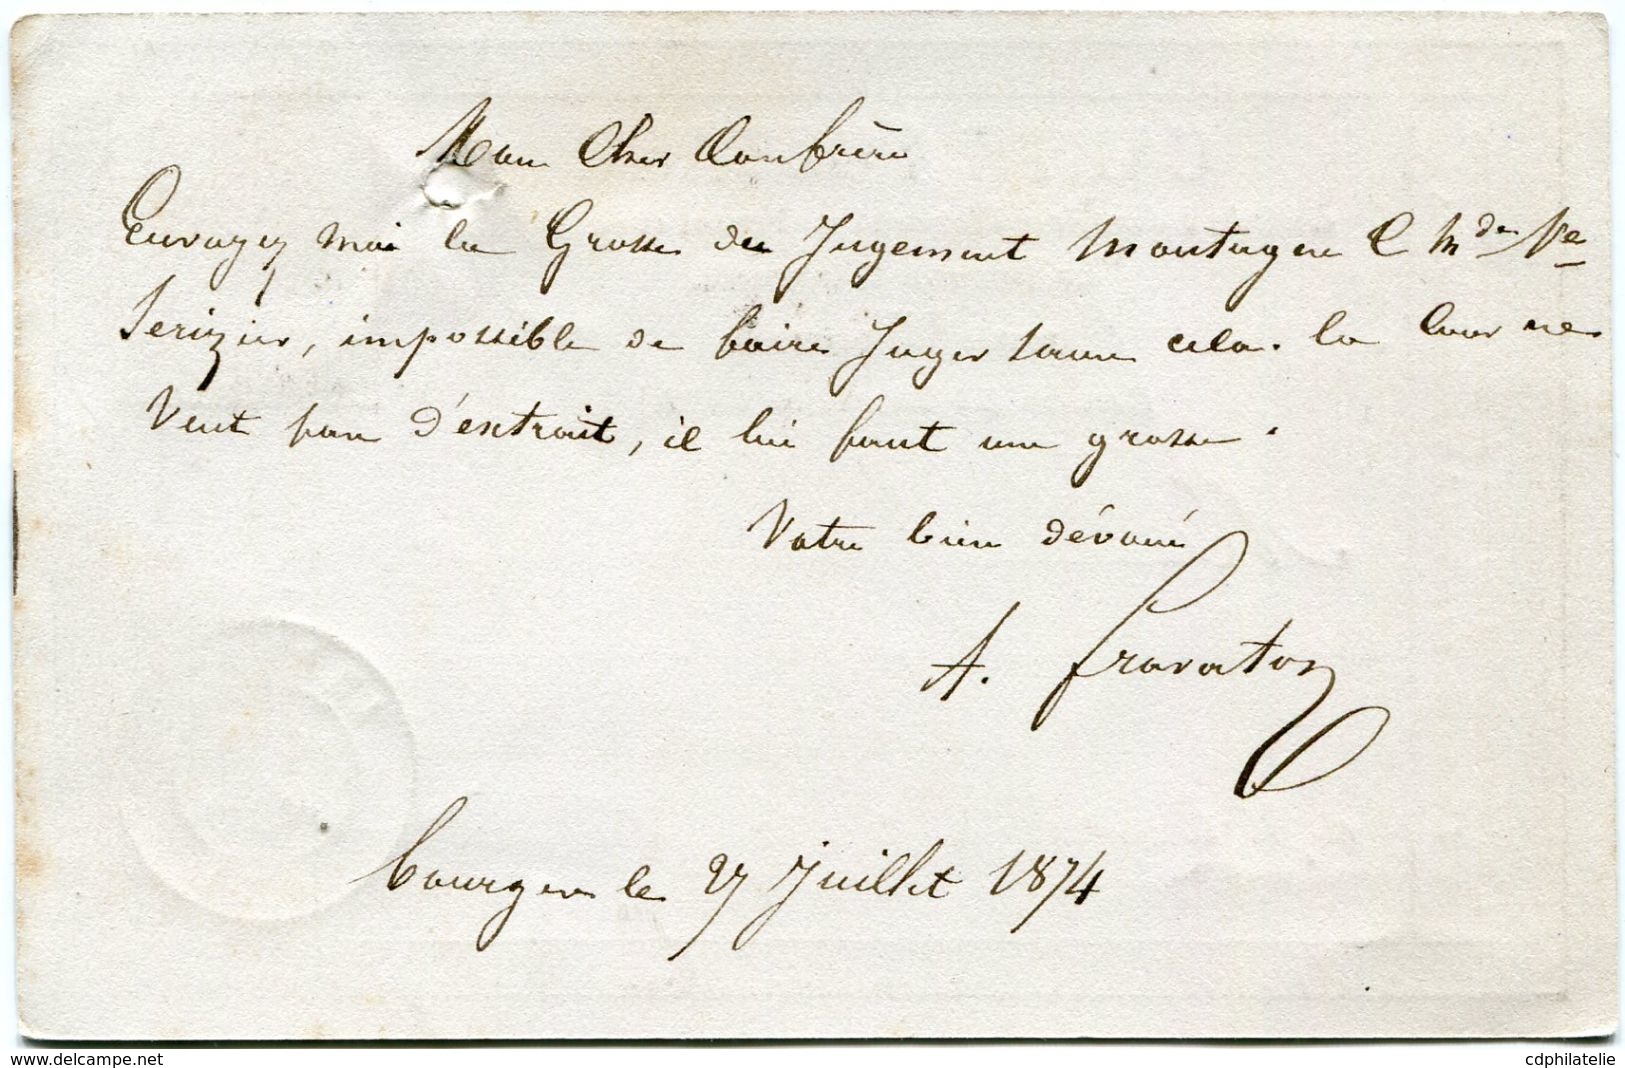 Mon Cher Confrère
Envoyez moi la Grosse du Jugement Montagne C Mde Ve
Serizier, impossible de faire Juger sans cela. la Cour ne
Veut pas d'extrait, il lui faut une grosse.
Votre bien dévoué
A.
bourges le 27 Juillet 1874
www.delcampe.net
cdphilatelie